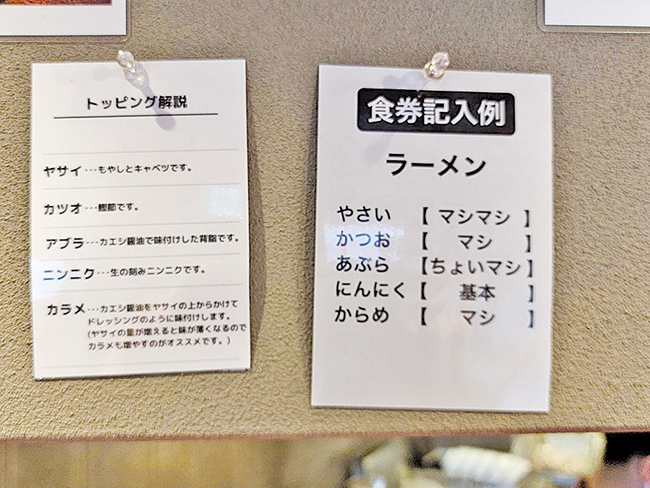 トッピング解説
ヤサイ…もやしとキャベツです。
カツオ…鰹節です。
アブラ…カエシ醤油で味付けした背脂です。
ニンニク…生の刻みニンニクです。
カラメ…カエシ醤油をヤサイの上からかけて
ドレッシングのように味付けします。
(ヤサイの量が増えると味が薄くなるので
カラメも増やすのがオススメです。)
食券記入例
ラーメン
やさい【マシマシ】
かつお【マシ】
あぶら【ちょいマシ】
にんにく【基本】
からめ【マシ】